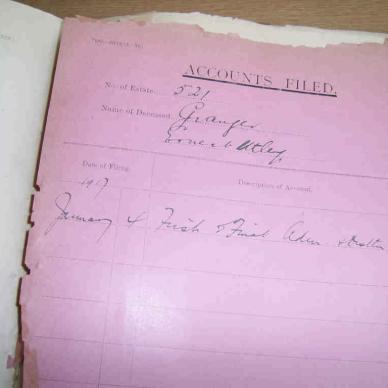 ACCOUNTS FILED.
No. of Estate 521
Name of Deceased Granger
Ernest Utley
Date of Filing. Description of Account.
1917
January 4 First & Final Adm